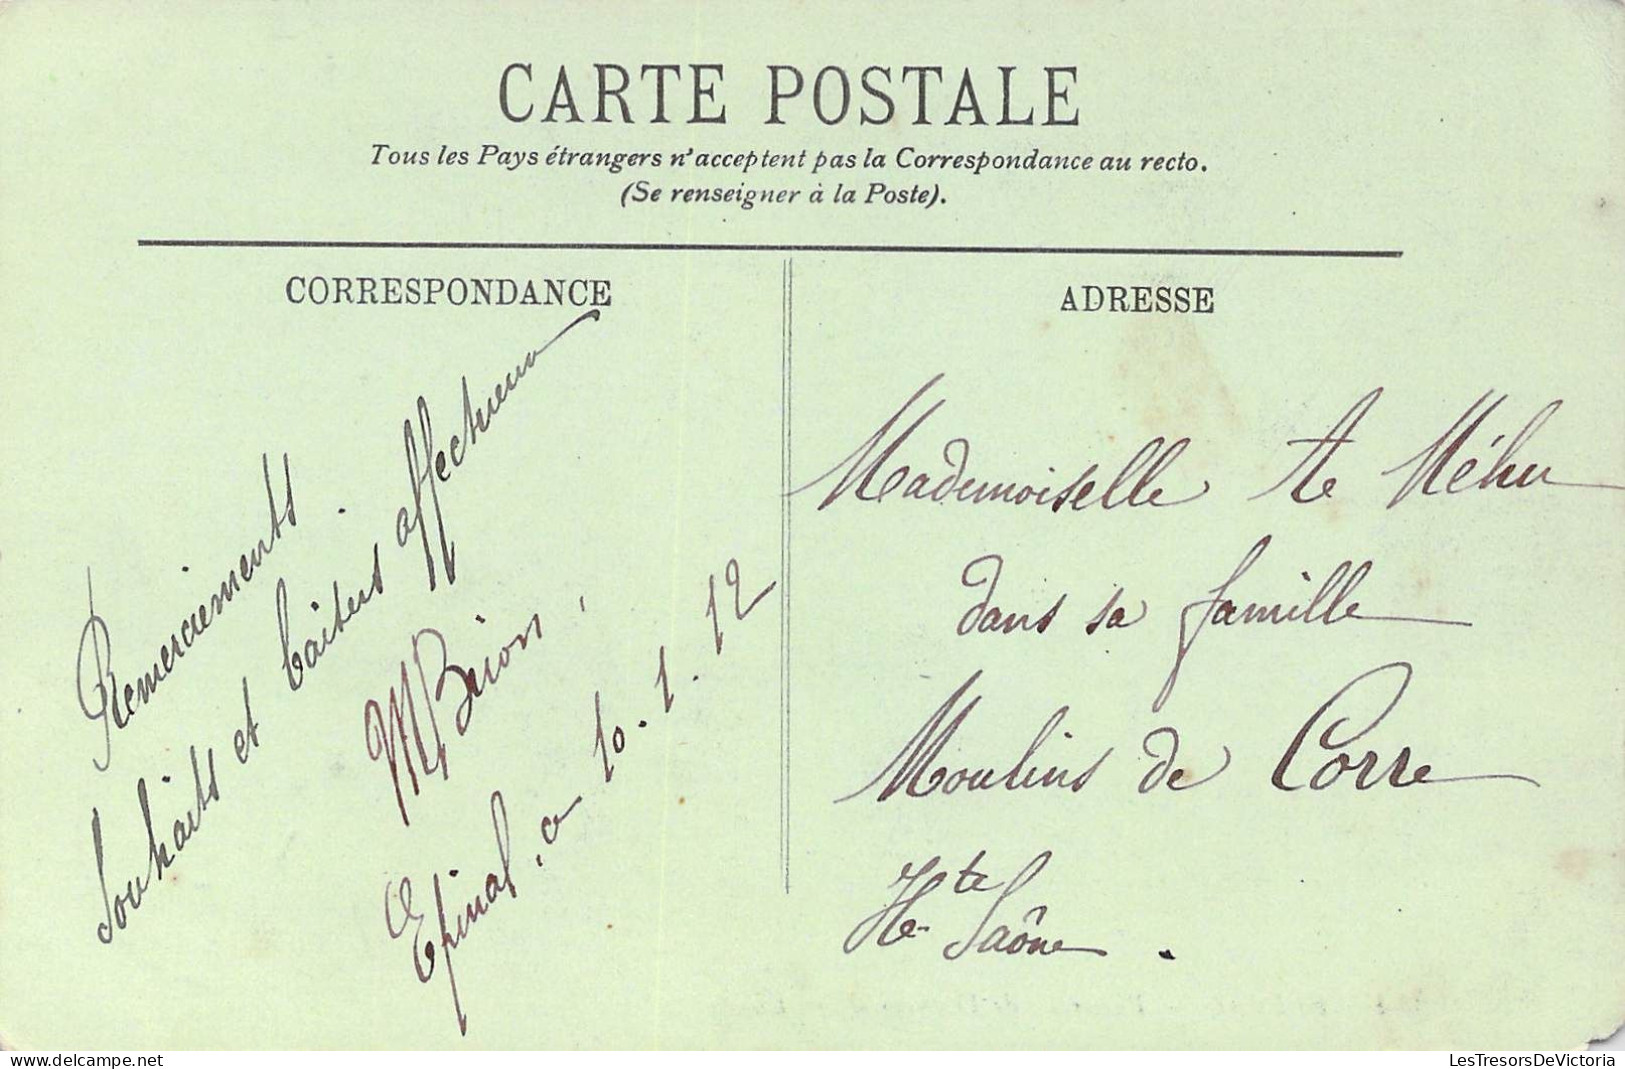 CARTE POSTALE
Tous les Pays étrangers n'acceptent pas la Correspondance au recto.
(Se renseigner à la Poste).
CORRESPONDANCE
Remerciements.
Souhaits et baisers affectueux
M Brion
Epinal, 10.1.12
ADRESSE
Mademoiselle A Méhu
dans sa famille
Moulins de Corre
Hte Saône.
delcampe.net
LesTresorsDeVictoria